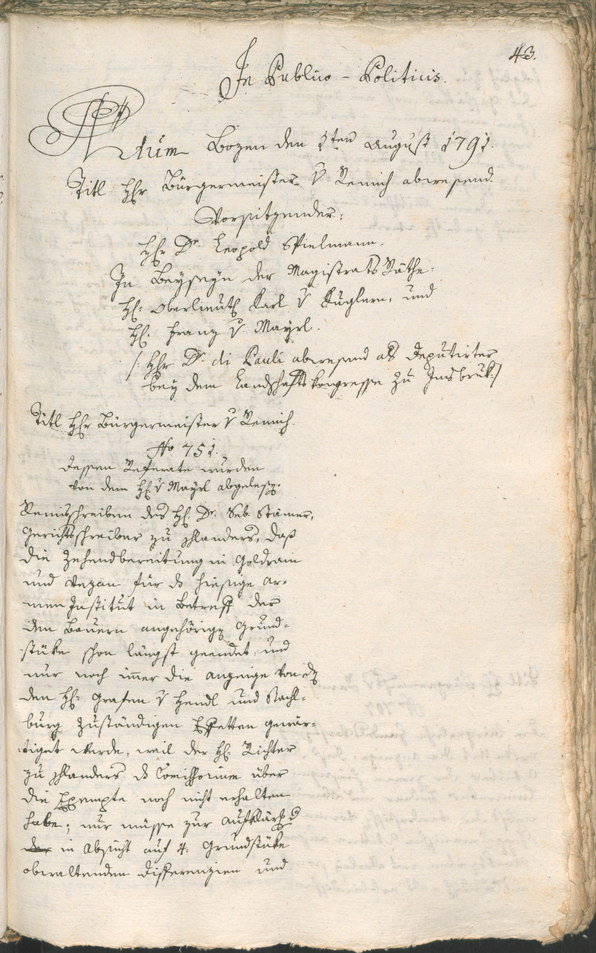 43.
In Publico-Politicis.
Actum Bozen den 1ten August 1791.
Titl Hr Bürgermeister v Remich abwesend.
Vorsitzender:
Hr Dr. Leopold Spielmann.
In Beyseyn der Magistrats Räthe.
H: Oberlieut Karl v Küglern, und
H: Franz v Mayrl.
/: Hr Dr. di Pauli abwesend als Deputirter
bey dem Landschafts Kongresse zu Insbruk :/
Titl Hr Bürgermeister v Remich.
No 751.
dessen Referate wurden
von dem H: v Mayrl abgelesen.
schreiben des H: Dr. Seb. Stainer,
Gerichtsschreiber zu Schlanders, daß
die Zehendbereitung in Goldrain
und Vezan für ds hiesige Ar-
men Institut in Betreff der
den Bauern angehörigen Grund-
stüke schon längst geendet, und
nur noch imer die Anzeige von
den H: Grafen v Hendl und Stachl-
burg zuständigen Effekten gewär-
tiget wurde, weil der H: Richter
zu Schlanders ds Comissorium über
die Exempte noch nicht erhalten
habe; nur müsse zur Aufklärung
in Absicht auf 4. Grundstüke
obwaltenden Differenzien und